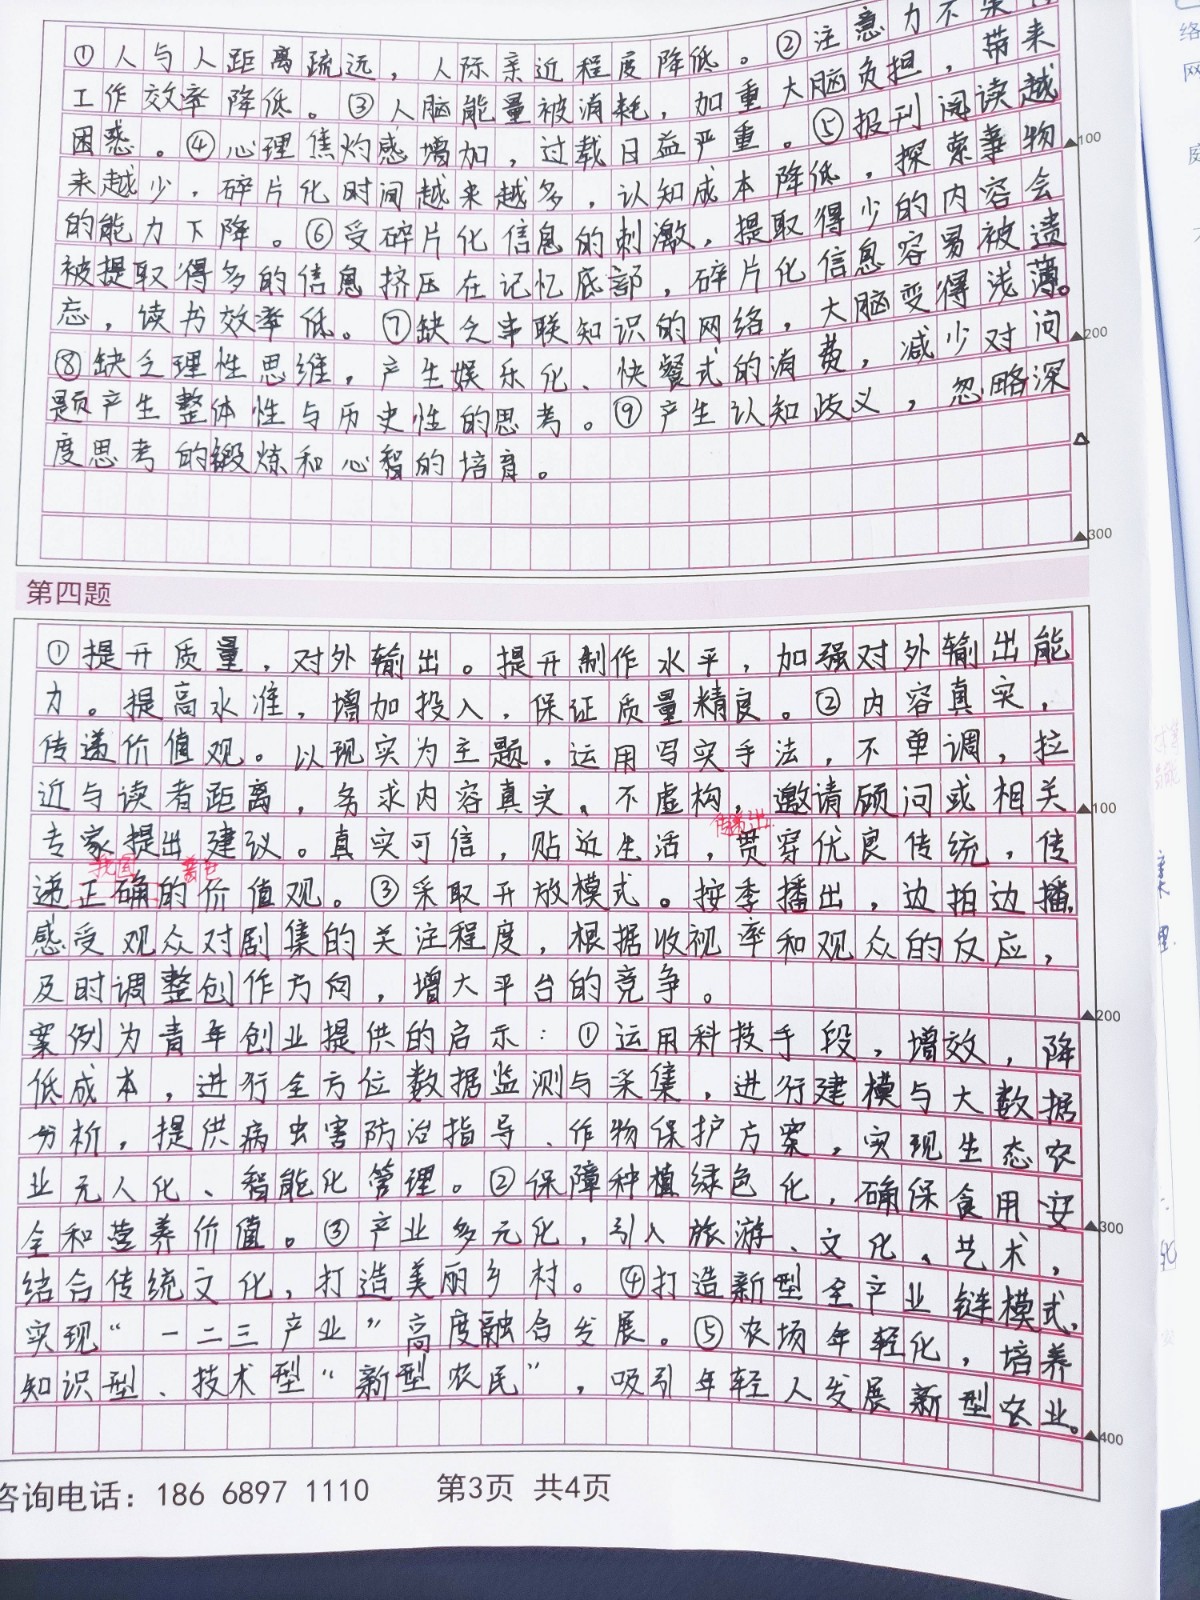 ①人与人距离疏远，人际亲近程度降低。②注意力不集
工作效率降低。③人脑能量被消耗，加重大脑负担，带来
困惑。④心理焦灼感增加，过载日益严重。⑤报刊阅读越
100
来越少，碎片化时间越来越多，认知成本降低，探索事物
的能力下降。⑥受碎片化信息的刺激，提取得少的内容会
被提取得多的信息挤压在记忆底部，碎片化信息容易被遗
忘，读书效率低。⑦缺乏串联知识的网络，大脑变得浅薄。
200
⑧缺乏理性思维，产生娱乐化、快餐式的消费，减少对问
题产生整体性与历史性的思考。⑨产生认知歧义，忽略深
度思考的锻炼和心智的培育。
300
第四题
①提升质量，对外输出。提升制作水平，加强对外输出能
力。提高水准，增加投入，保证质量精良。②内容真实，
传递价值观。以现实为主题，运用写实手法，不单调，拉
近与读者距离，务求内容真实、不虚构，邀请顾问或相关
100
专家提出建议。真实可信，贴近生活，贯穿优良传统，传
我国
递正确的价值观。③采取开放模式。按季播出，边拍边播，
感受观众对剧集的关注程度，根据收视率和观众的反应，
及时调整创作方向，增大平台的竞争。
200
案例为青年创业提供的启示：①运用科技手段，增效，降
低成本，进行全方位数据监测与采集，进行建模与大数据
分析，提供病虫害防治指导、作物保护方案，实现生态农
业无人化、智能化管理。②保障种植绿色化，确保食用安
300
全和营养价值。③产业多元化，引入旅游、文化、艺术，
结合传统文化，打造美丽乡村。④打造新型全产业链模式，
实现“一二三产业”高度融合发展。⑤农场年轻化，培养
知识型、技术型“新型农民”，吸引年轻人发展新型农业。
400
咨询电话：186 6897 1110 第3页 共4页